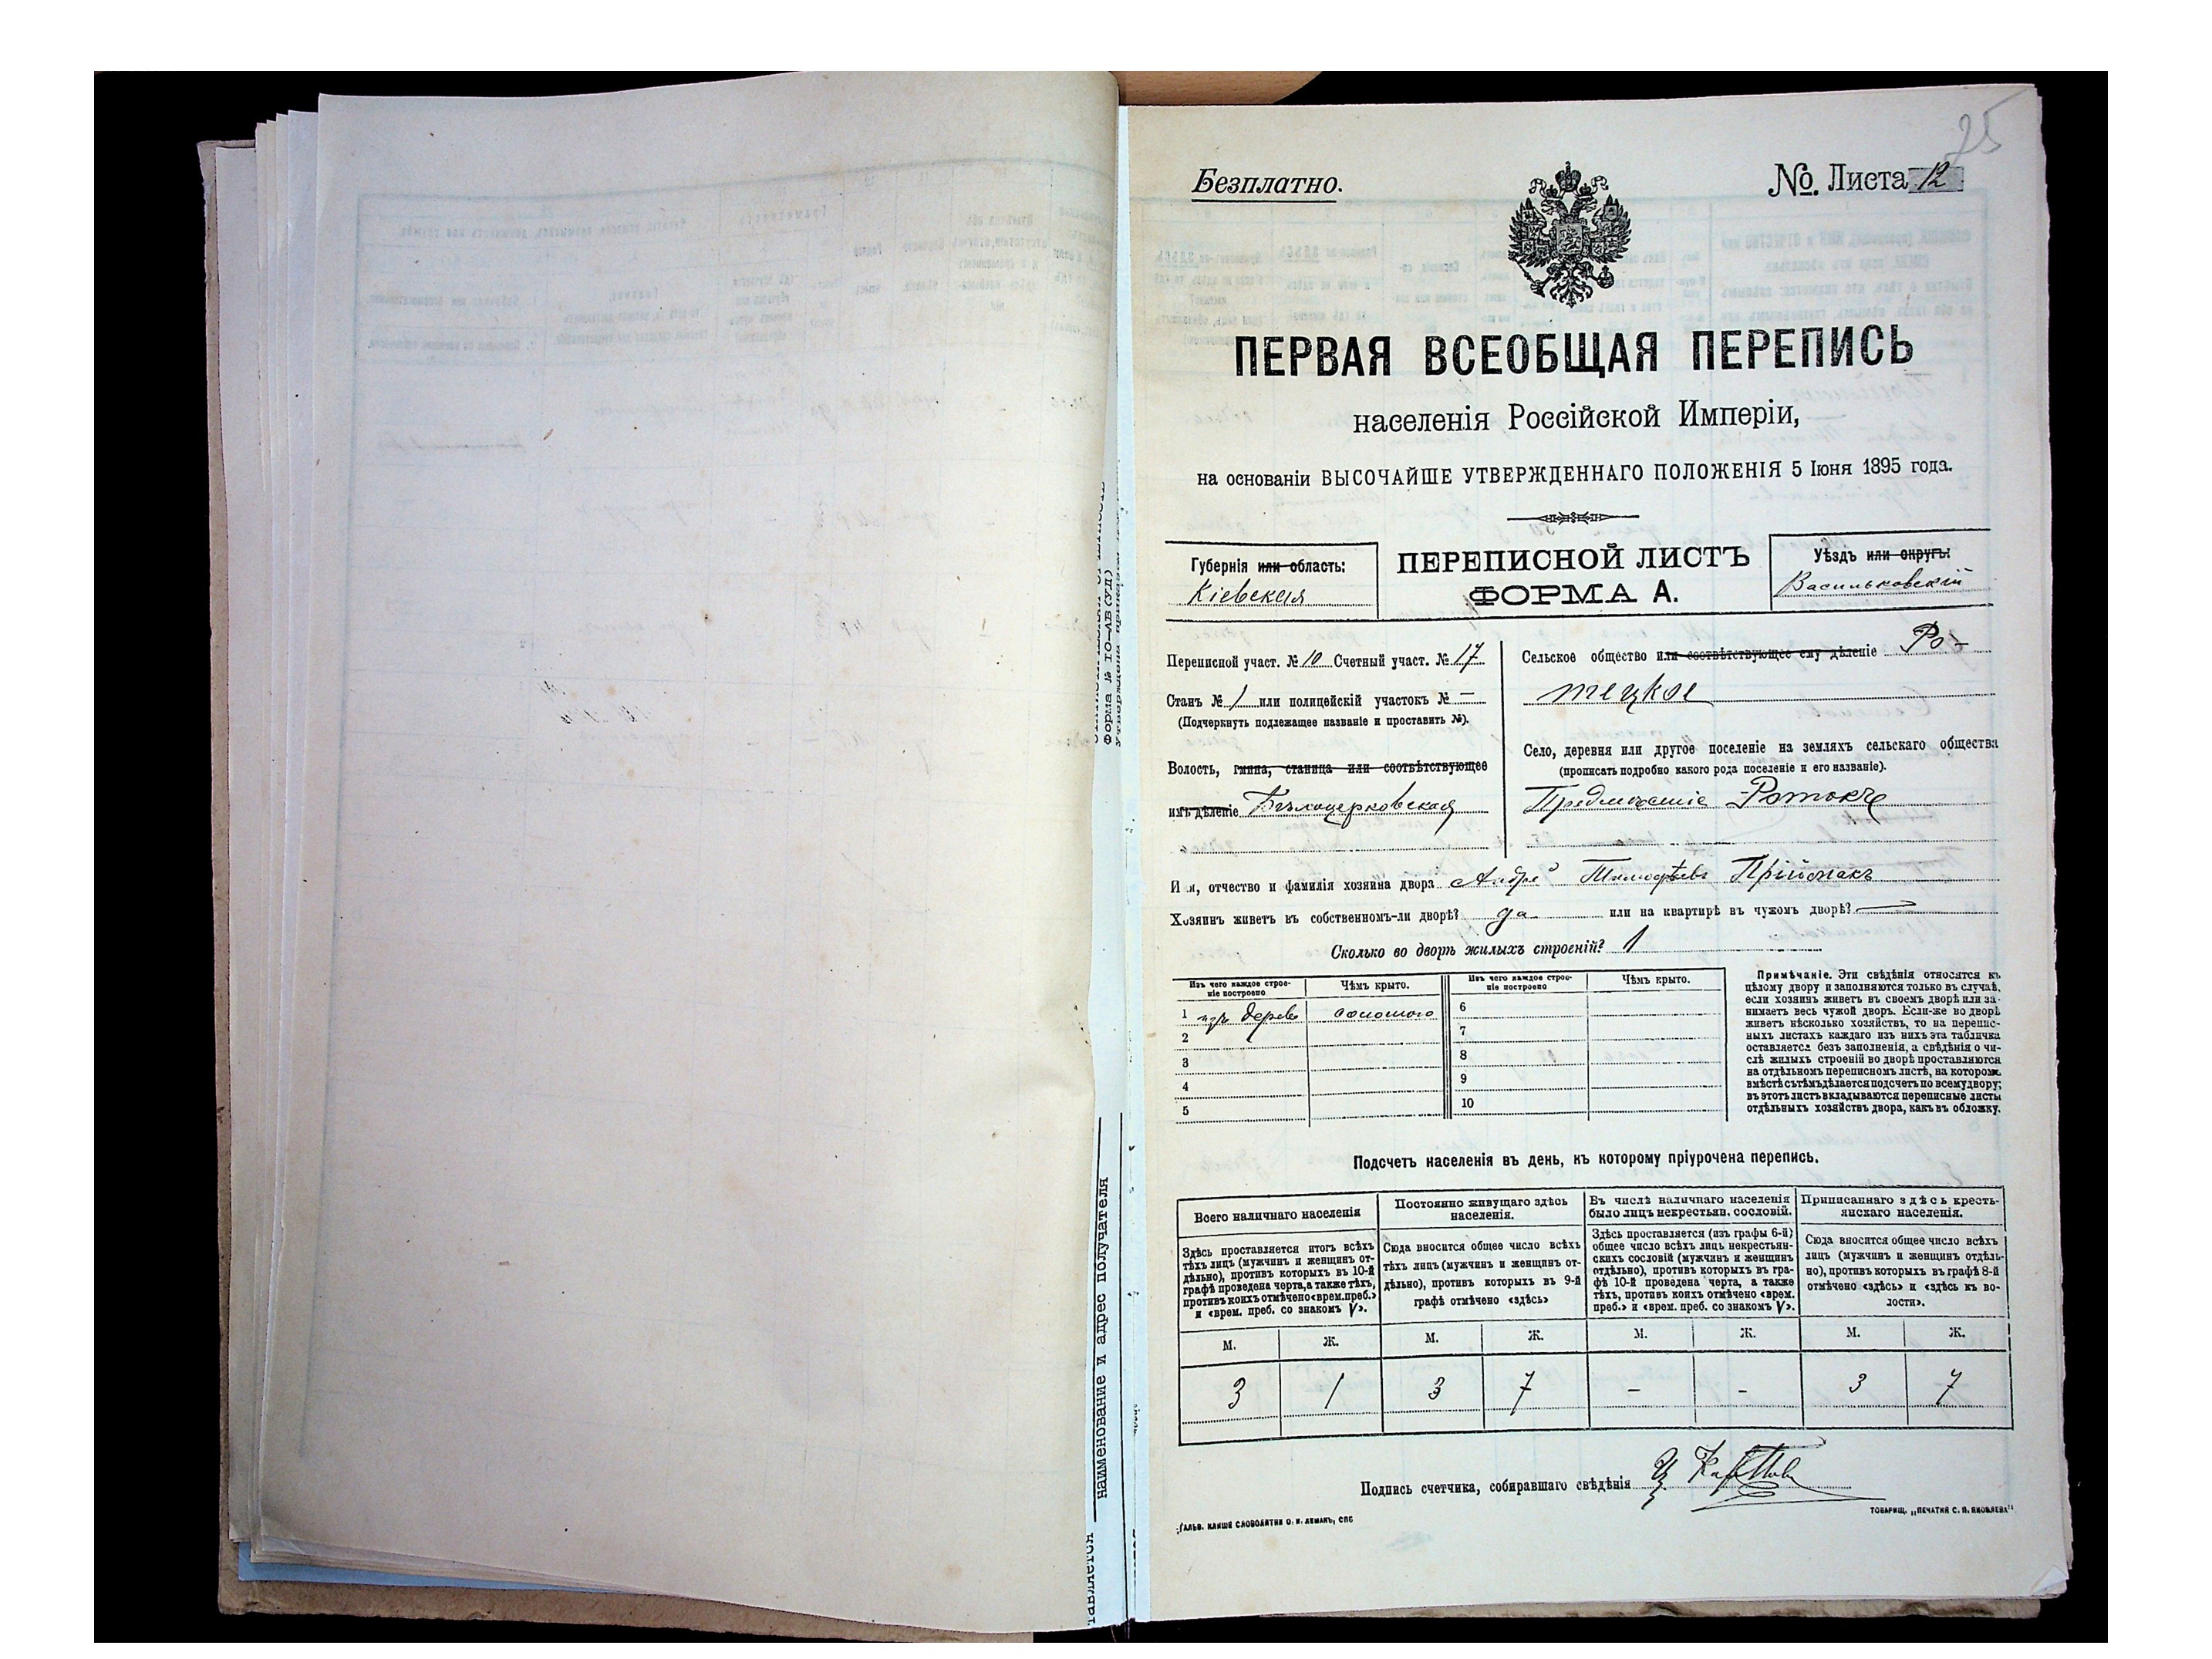 25
Безплатно.
№ Листа 12
ПЕРВАЯ ВСЕОБЩАЯ ПЕРЕПИСЬ
населенія Россійской Имперіи,
на основаніи ВЫСОЧАЙШЕ УТВЕРЖДЕННАГО ПОЛОЖЕНІЯ 5 Іюня 1895 года.
Губернія или область:
Кіевская
ПЕРЕПИСНОЙ ЛИСТЪ
ФОРМА А.
Уѣздъ или округъ:
Васильковскій
Переписной участ. № 10 Счетный участ. № 17
Станъ № 1 или полицейскій участокъ № —
(Подчеркнуть подлежащее названіе и проставить №).
Волость, гмина, станица или соотвѣтствующее
имъ дѣленіе Бѣлоцерковская
Сельское общество или соотвѣтствующее ему дѣленіе Ро-
тецкое
Село, деревня или другое поселеніе на земляхъ сельскаго общества
(прописать подробно какого рода поселеніе и его названіе).
Предмѣстіе Ротокъ
Имя, отчество и фамилія хозяина двора Андрей Тимофѣевъ Пріймакъ
Хозяинъ живетъ въ собственномъ-ли дворѣ? да или на квартирѣ въ чужомъ дворѣ? —
Сколько во дворѣ жилыхъ строеній? 1
Изъ чего каждое строе-
ніе построено
Чѣмъ крыто.
Изъ чего каждое строе-
ніе построено
Чѣмъ крыто.
1 изъ дерева соломою 6
2 7
3 8
4 9
5 10
Примѣчаніе. Эти свѣдѣнія относятся къ
цѣлому двору и заполняются только въ случаѣ,
если хозяинъ живетъ въ своемъ дворѣ или за-
нимаетъ весь чужой дворъ. Если-же во дворѣ
живетъ нѣсколько хозяйствъ, то на перепис-
ныхъ листахъ каждаго изъ нихъ эта табличка
оставляется безъ заполненія, а свѣдѣнія о чи-
слѣ жилыхъ строеній во дворѣ проставляются
на отдѣльномъ переписномъ листѣ, на которомъ
вмѣстѣ съ тѣмъ дѣлается подсчетъ по всему двору;
въ этотъ листъ вкладываются переписные листы
отдѣльныхъ хозяйствъ двора, какъ въ обложку.
Подсчетъ населенія въ день, къ которому пріурочена перепись.
Всего наличнаго населенія
Здѣсь проставляется итогъ всѣхъ
тѣхъ лицъ (мужчинъ и женщинъ от-
дѣльно), противъ которыхъ въ 10-й
графѣ проведена черта, а также тѣхъ,
противъ коихъ отмѣчено «врем. преб.»
и «врем. преб. со знакомъ V».
Постоянно живущаго здѣсь
населенія.
Сюда вносится общее число всѣхъ
тѣхъ лицъ (мужчинъ и женщинъ от-
дѣльно), противъ которыхъ въ 9-й
графѣ отмѣчено «здѣсь»
Въ числѣ наличнаго населенія
было лицъ некрестьян. сословій.
Здѣсь проставляется (изъ графы 6-й)
общее число всѣхъ лицъ некрестьян-
скихъ сословій (мужчинъ и женщинъ
отдѣльно), противъ которыхъ въ гра-
фѣ 10-й проведена черта, а также
тѣхъ, противъ коихъ отмѣчено «врем.
преб.» и «врем. преб. со знакомъ V».
Приписаннаго здѣсь кресть-
янскаго населенія.
Сюда вносится общее число всѣхъ
лицъ (мужчинъ и женщинъ отдѣль-
но), противъ которыхъ въ графѣ 8-й
отмѣчено «здѣсь» и «здѣсь къ во-
лости».
М. Ж. М. Ж. М. Ж. М. Ж.
3 1 3 7 - - 3 7
Подпись счетчика, собиравшаго свѣдѣнія
ГАЛЬВ. КЛИШЕ СЛОВОЛИТНИ О. И. ЛЕМАНЪ, СПБ
ТОВАРИЩ. „ПЕЧАТНЯ С. П. ЯКОВЛЕВА"
наименование и адрес получателя